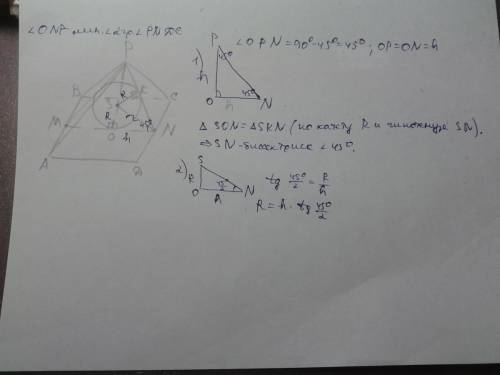 ∠ONP лин. ∠ для ∠PNDC
P
B
S
R
K
R
C
M
45°
O
N
h
A
D
∠OPN = 90° - 45° = 45°; OP = ON = h
1)
P
45°
h
45°
O h N
Δ SON = Δ SKN (по катету R и гипотенузе SN).
⇒ SN - биссектриса ∠45°.
2)
S
R
O h N
tg 45°/2 = R/h
R = h · tg 45°/2